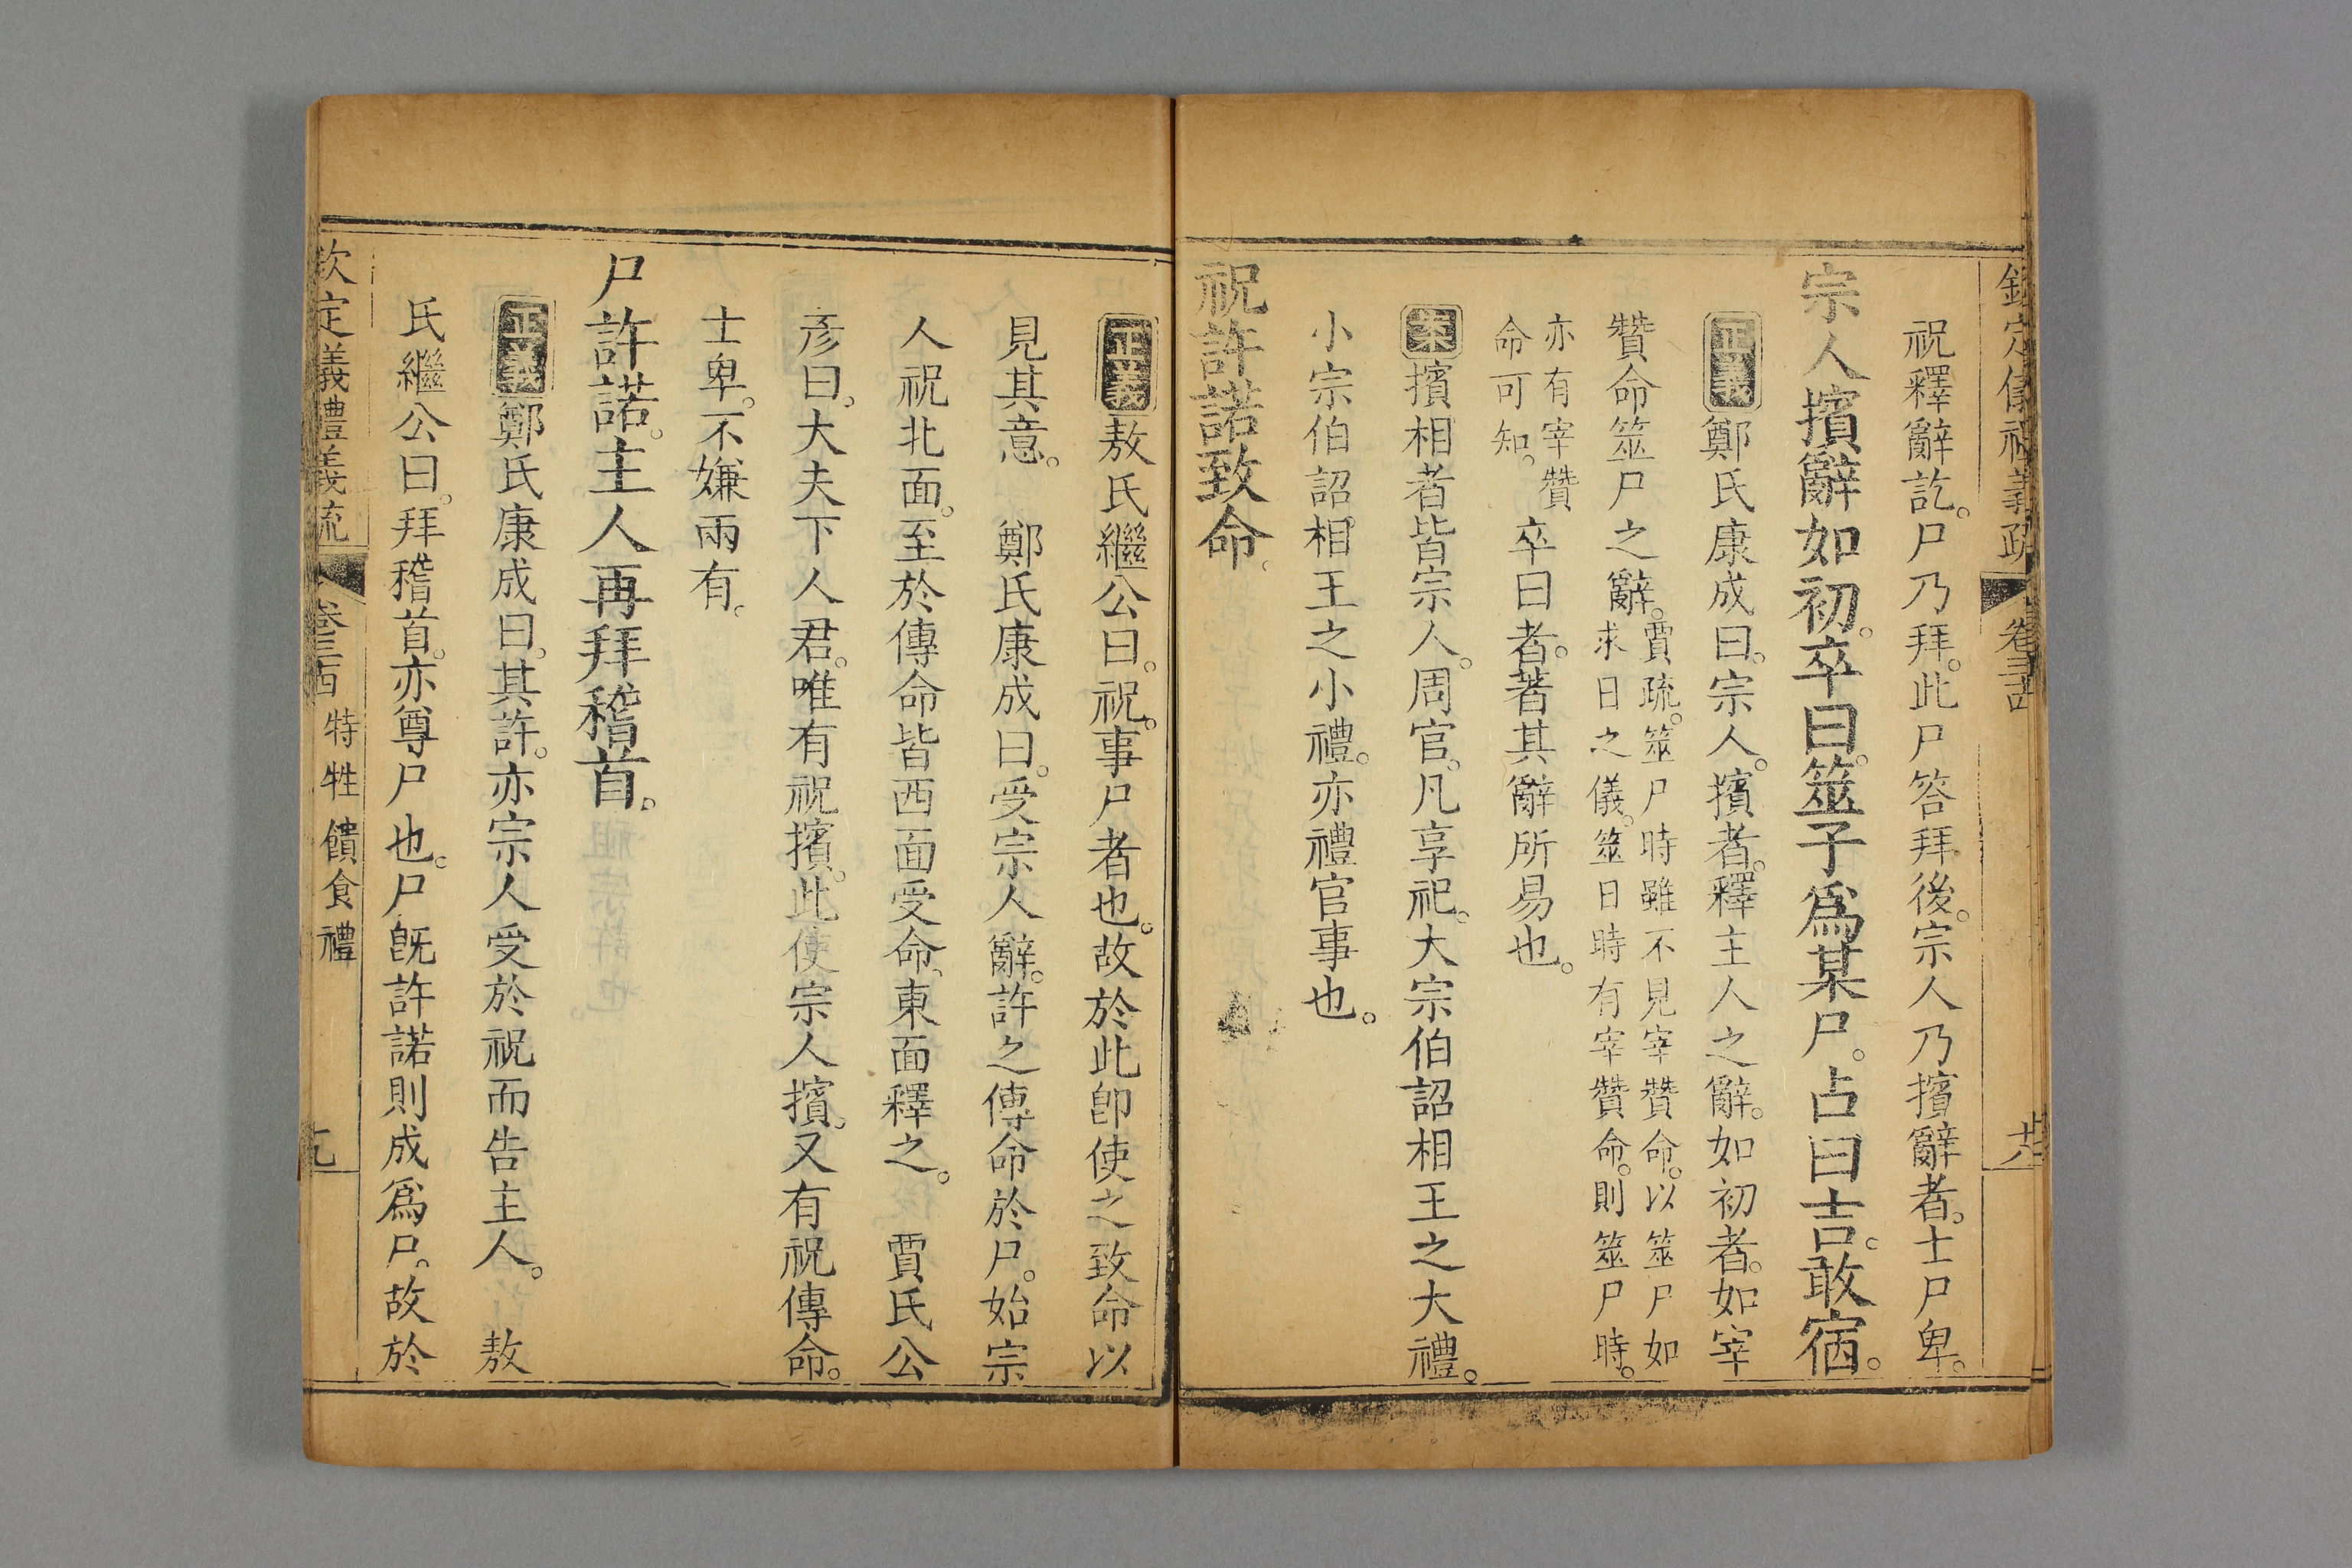 欽定儀禮義疏 卷三十四 十八
祝釋辭訖。尸乃拜。此尸答拜後。宗人乃擯辭者。士尸卑。
宗人擯辭如初。卒曰。筮子爲某尸。占曰吉。敢宿。
正義鄭氏康成曰。宗人。擯者。釋主人之辭。如初者。如宰
贊命筮尸之辭。賈疏。筮尸時雖不見宰贊命。以筮尸如
求日之儀。筮日時有宰贊命。則筮尸時。
亦有宰贊
命可知。 卒曰者。著其辭所易也。
案擯相者皆宗人。周官。凡享祀。大宗伯詔相王之大禮。
小宗伯詔相王之小禮。亦禮官事也。
祝許諾致命。
正義敖氏繼公曰。祝。事尸者也。故於此卽使之致命以
見其意。 鄭氏康成曰。受宗人辭。許之傳命於尸。始宗
人祝北面。至於傳命皆西面受命、東面釋之。 賈氏公
彥曰。大夫下人君。唯有祝擯。此使宗人擯。又有祝傳命。
士卑。不嫌兩有。
尸許諾。主人再拜稽首。
正義鄭氏康成曰。其許。亦宗人受於祝而告主人。 敖
氏繼公曰。拜稽首。亦尊尸也。尸旣許諾則成爲尸。故於
欽定義禮義疏 卷三十四 特牲饋食禮